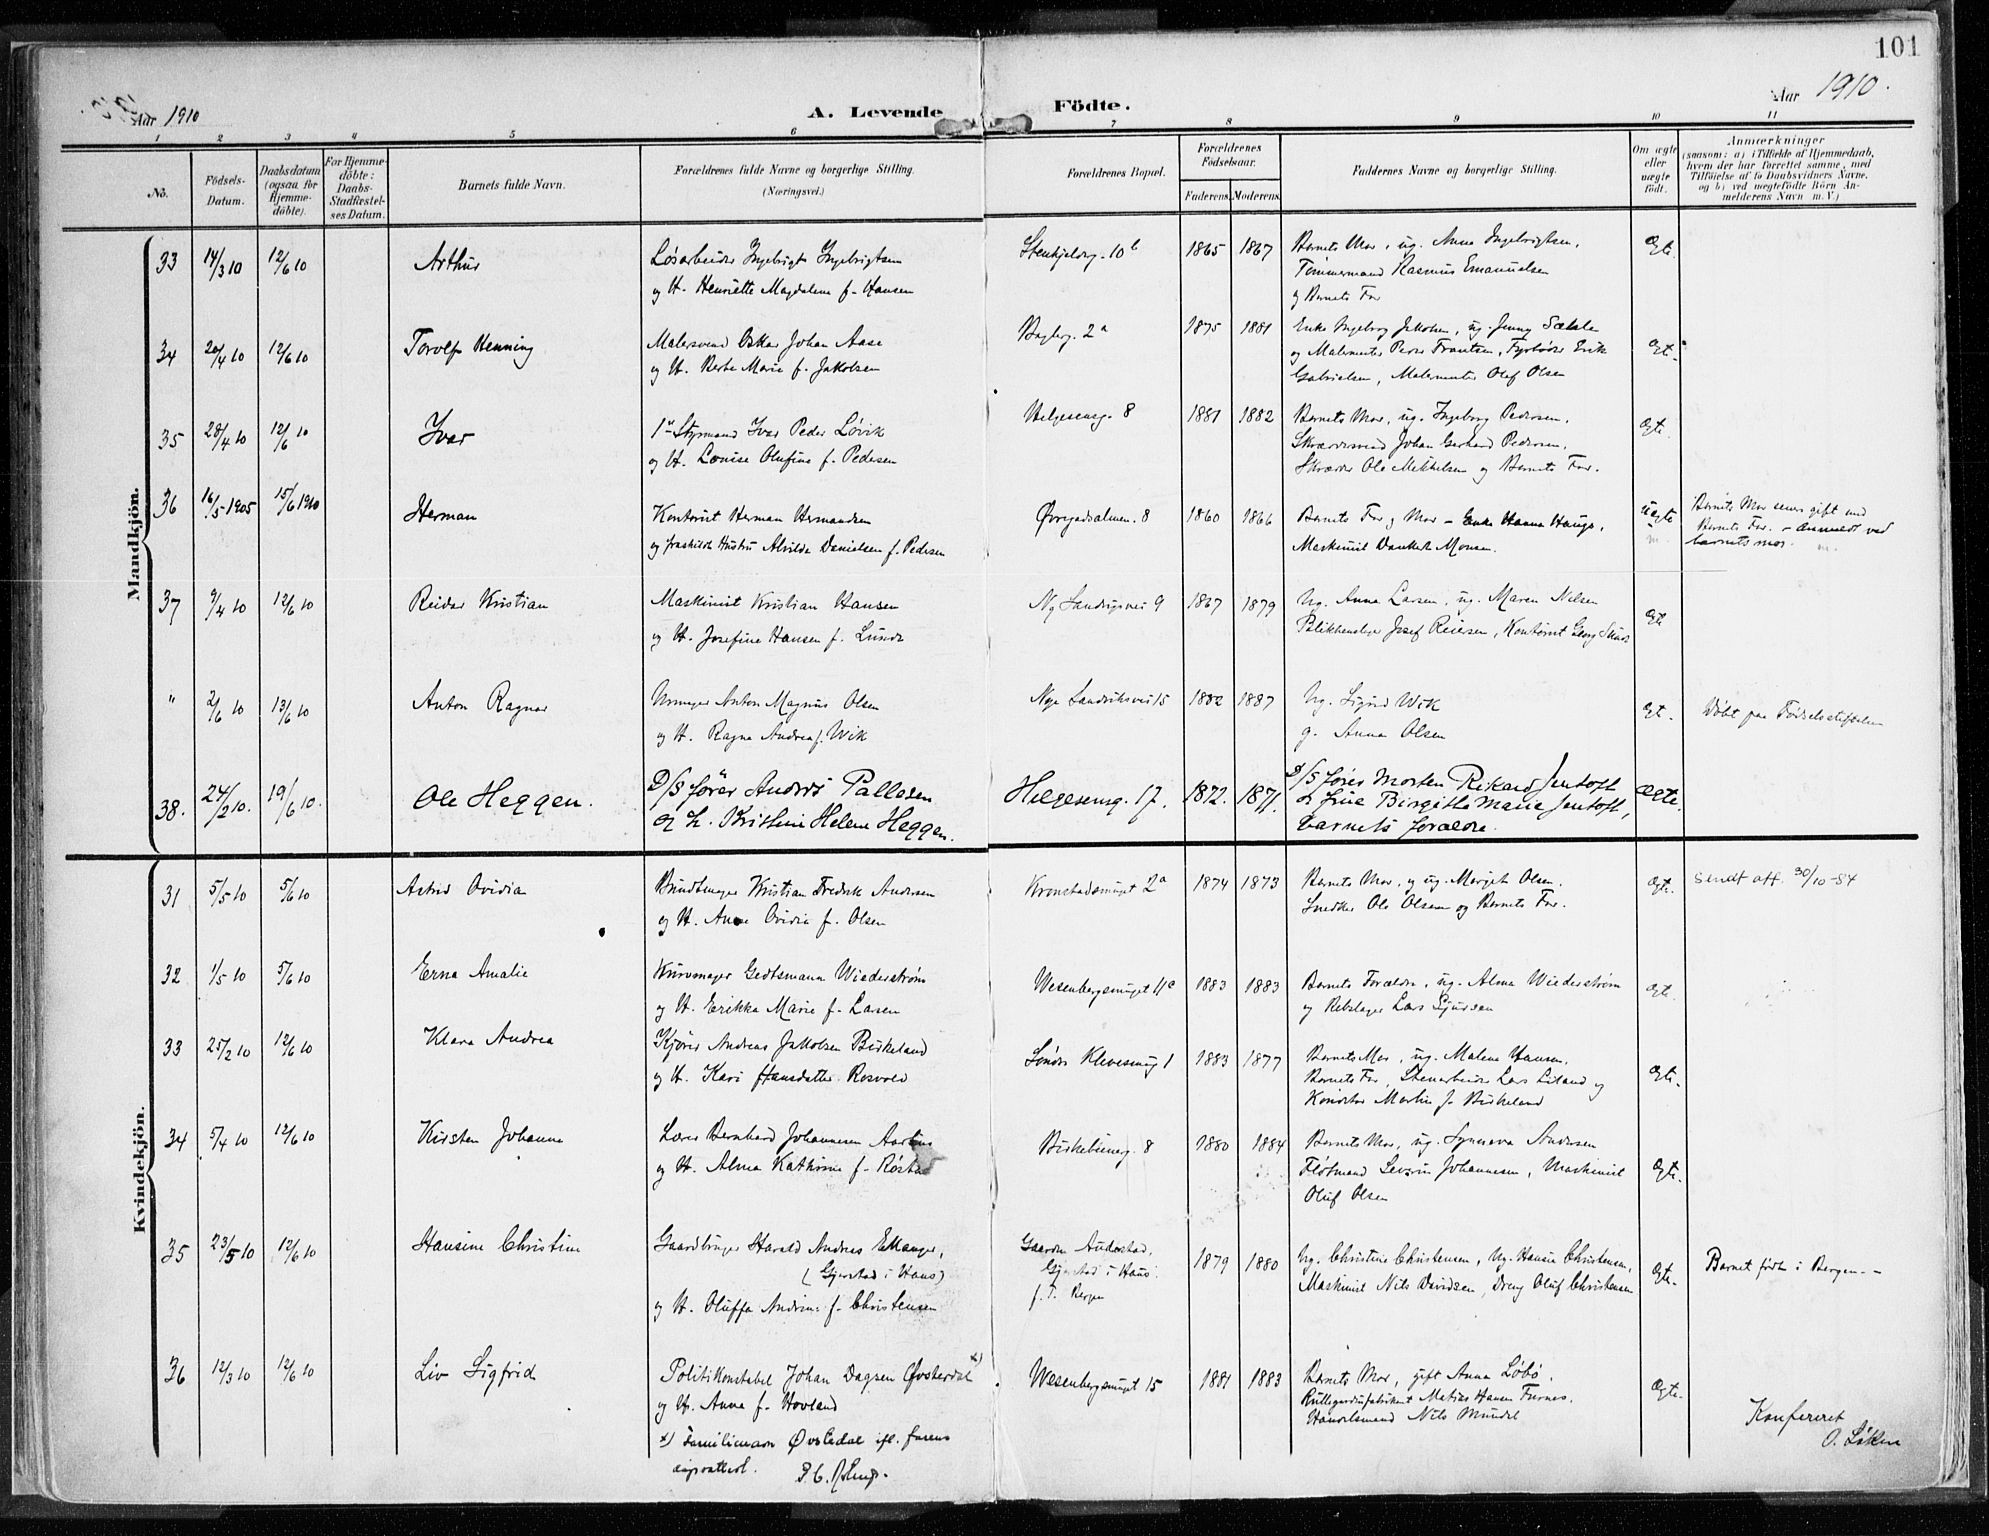 101
Aar 1910
A. Levende Födte.
Aar 1910.
1 2 3 4 5 6 7 8 9 10 11
No.
Födsels-Datum.
Daabsdatum (ogsaa for Hjemme-döbte).
For Hjemme-döbte: Daabs-Stadfæstel-ses Datum.
Barnets fulde Navn.
Forældrenes fulde Navne og borgerlige Stilling.
(Næringsvei.)
Forældrenes Bopæl.
Forældrenes Födselsaar.
Faderens.
Moderens.
Faddernes Navne og borgerlige Stilling.
Om ægte eller uægte födt.
Anmærkninger
(saasom: a) i Tilfælde af Hjemmedaab, hvem der har forrettet samme, med Tilföielse af to Daabsvidners Navne, og b) ved uægtefödte Börn An-melderens Navn m. V.)
Mandkjön.
33 14/3 10 12/6 10 Arthur Løsarbeider Ingebrigt Ingebrigtsen Stenkjelderg. 10b 1865 1867 Barnets Mor, ug. Anna Ingebrigtsen, Ægte.
og H. Henriette Magdalena f. Hansen Tømmermand Rasmus Emanuelsen
og Barnets Far
34 20/4 10 12/6 10 Torolf Henning Malersvend Oskar Johan Aase 2a 1875 1881 Enke Ingeborg Jakobsen, ug. Jenny Sælele Ægt.
og H. Berte Marie f. Jakobsen og Malermester Peder Frantsen, Fyrbøder Erik
Gabrielsen, Malermester Olaf Olsen
35 28/4 10 12/6 10 Ivar 1ste Styrmand Ivar Peder Løvik Helgesensg. 8 1881 1882 Barnets Mor, ug. Ingeborg Pedersen, Ægte.
og H. Louise Olufine f. Pedersen Skræddersvend Johan Gerhard Pedersen,
Skrædder Ole Mikkelsen og Barnets Far.
36 16/5 1905 15/6 1910 Herman Kontorist Herman Hermansen Øvregadsalmen. 8 1860 1866 Barnets Far og Mor - Enke Hanna Hauge, uægte Barnets Mor senere gift med
og fraskildt Hustru Alvilde Danielsen f. Pedersen Maskinist Dankert Monsen. Barnets Far. - Anmeldt ved
barnets mor.
37 9/4 10 12/6 10 Reidar Kristian Maskinist Kristian Hansen Ny Sandvigsvei 9 1867 1879 Ug. Anna Larsen, ug. Maren Nilsen Ægte
og H. Josefine Hansen f. Lunde Blikkenslager Josef Reiersen, Kontorist Georg
" 2/6 10 13/6 10 Anton Ragnar Urmager Anton Magnus Olsen Nye Sandviksvei 15 1882 1887 Ug. Sigrid Wik Ægt. Døbt paa Fødselsstiftelsen
og H. Ragna Andrea f. Wik g. Anna Olsen
38. 24/2 10. 19/6 10. Ole Heggen. D/S fører Anders Pallesen Helgesensg. 17. 1872. 1871. D/S fører Morten Rikard Jentoft Ægte.
og h. Kristine Helene Heggen. & frue Birgitte Marie Jentoft,
barnets forældre.
Kvindekjön.
31 5/5 10 5/6 10 Astrid Ovidia Bundtmager Kristian Fredrik Andersen Kronstadsmuget 2a 1874 1873 Barnets Mor, og ug. Margit Olsen. Ægte. Sendt att. 30/10-84
og H. Anna Ovidia f. Olsen Snedker Ole Olsen og Barnets Far.
32 1/5 10 5/6 10 Erna Amalie Kurvmager Gedtsmann Wiederstrøm Wesenbergsmuget 11c 1883 1883 Barnets Forældre, ug. Alma Wiederstrøm Ægte.
og H. Erikka Marie f. Larsen og Rebslager Lars Sjursen
33 25/2 10 12/6 10 Klara Andrea Kjører Andreas Jakobsen Birkeland Søndre Klevesmug 1 1883 1877 Barnets Mor, ug. Malene Hansen, Ægte.
og H. Kari Hansdatter Rosvold Barnets Far, Stenarbeider Lars Liland og
Konditor Martin J. Birkeland
34 5/4 10 12/6 10 Kirsten Johanne Lærer Bernhard Johannesen Aarhus Birkebeinerg. 8 1880 1884 Barnets Mor, ug. Synneva Andersen Ægte.
og H. Alma Kathrine f. Røstad Fløtmand Severin Johannesen, Maskinist
Oluf Olsen
35 23/5 10 12/6 10 Hansine Christine Gaardbruger Harald Andreas Ellanger, Gaarden Audestad, 1879 1880 Ug. Christine Christensen, Ug. Hansine Christensen, Ægte. Barnet født i Bergen.
(Gjerstad i Haus) Gjerstad i Haus
og H. Oluffa Andrine f. Christensen f. T. Bergen Maskinist Nils Davidsen, Dreng Oluf Christensen
36 12/3 10 12/6 10 Liv Sigfrid Politikonstabel Johan Dagsen Øvsterdal x) Wesenbergsmuget 15 1881 1883 Barnets Mor, gift Anna Løbø, Ægte.
og H. Anna f. Hovland Rullegardinfabrikant Matias Hansen Furnes,
Handelsmand Nils Mundal
x) Familienavn Øvstedal ifl. farens
daapsattest.
Konfereret
O. Løken